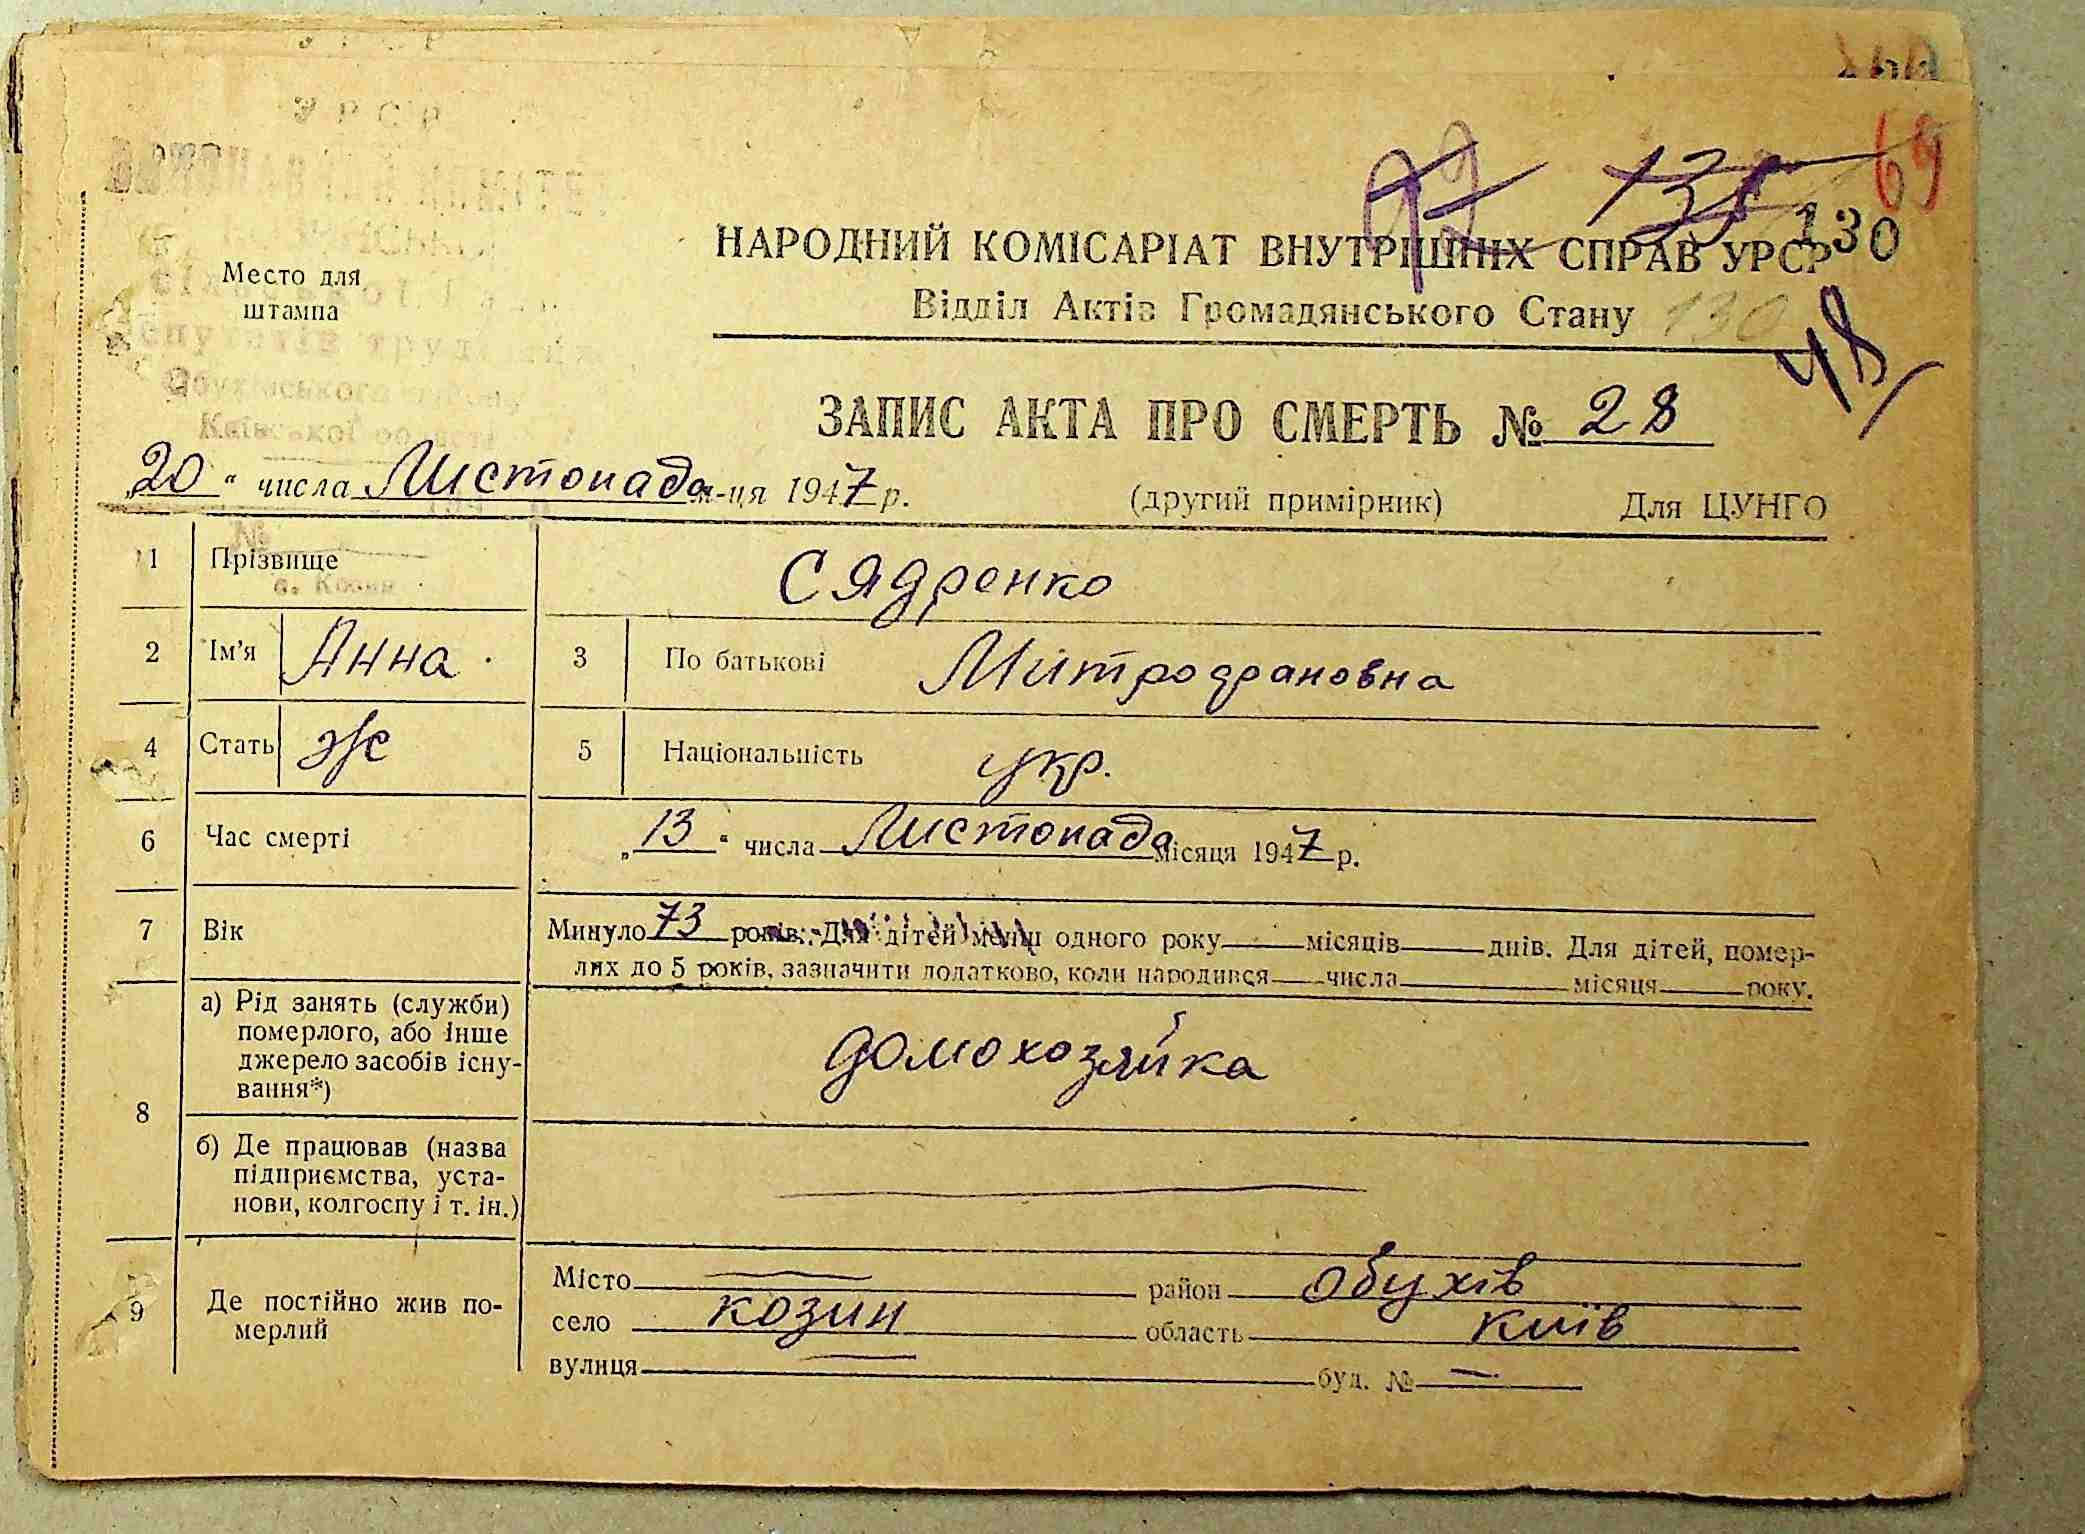 УРСР
ВИКОНАВЧИЙ КОМІТЕТ
депутатів трудящих
Обухівського району
Київської області
№
с. Козин
Место для
штампа
69
97 135
130
НАРОДНИЙ КОМІСАРІАТ ВНУТРІШНІХ СПРАВ УРСР
Відділ Актів Громадянського Стану 130
48
ЗАПИС АКТА ПРО СМЕРТЬ № 28
„20“ числа Листопада м-ця 1947 р. (другий примірник) Для ЦУНГО
1 Прізвище Сядренко
2 Ім'я Анна 3 По батькові Митрофановна
4 Стать ж 5 Національність укр.
6 Час смерті „13“ числа Листопада місяця 1947 р.
7 Вік Минуло 73 років. Для дітей менш одного року місяців днів. Для дітей, помер-
лих до 5 років, зазначити додатково, коли народився числа місяця року.
8 а) Рід занять (служби)
померлого, або інше
джерело засобів існу-
вання*) домохозяйка
б) Де працював (назва
підприємства, уста-
нови, колгоспу і т. ін.) —
9 Де постійно жив по-
мерлий
Місто — район Обухів
село Козин область Київ
вулиця — буд. № —